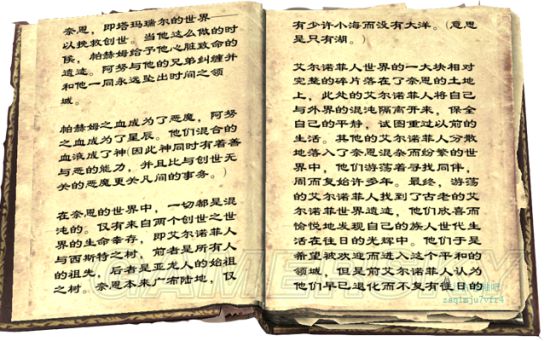 奈恩，即塔玛瑞尔的世界
以挽救创世。当他这么做的时
候，帕赫姆给予他心脏致命的
一击。阿努与他的兄弟纠缠并
和他一同永远坠出时间之领
域。
帕赫姆之血成为了恶魔，阿努
之血成为了星辰。他们混合的
血液成了神(因此神同时有着善
与恶的能力，并且比与创世无
关的恶魔更关凡间的事务。)
在奈恩的世界中，一切都是混
沌的。仅有来自两个创世之世
界的生命幸存，即艾尔诺菲人
与西斯特之树，前者是所有人
的祖先，后者是亚龙人的始祖
之树。奈恩本来广布陆地，仅
有少许小海而没有大洋。(意思
是只有湖。)
艾尔诺菲人世界的一大块相对
完整的碎片落在了奈恩的土地
上，此处的艾尔诺菲人将自己
与外界的混沌隔离开来，保全
自己的平静，试图重过以前的
生活。其他的艾尔诺菲人分散
地落入了奈恩混杂而纷繁的世
界中，他们游荡着寻找同伴，
周而复始许多年。最终，游荡
的艾尔诺菲人找到了古老的艾
尔诺菲世界遗迹，他们欣喜而
愉悦地发现自己的族人世代生
活在往日的光辉中。他们于是
希望被欢迎而进入这个平和的
领域，但是前艾尔诺菲人认为
他们早已退化而不复有往日的
GAMERSKY
zaqimju7vfr4